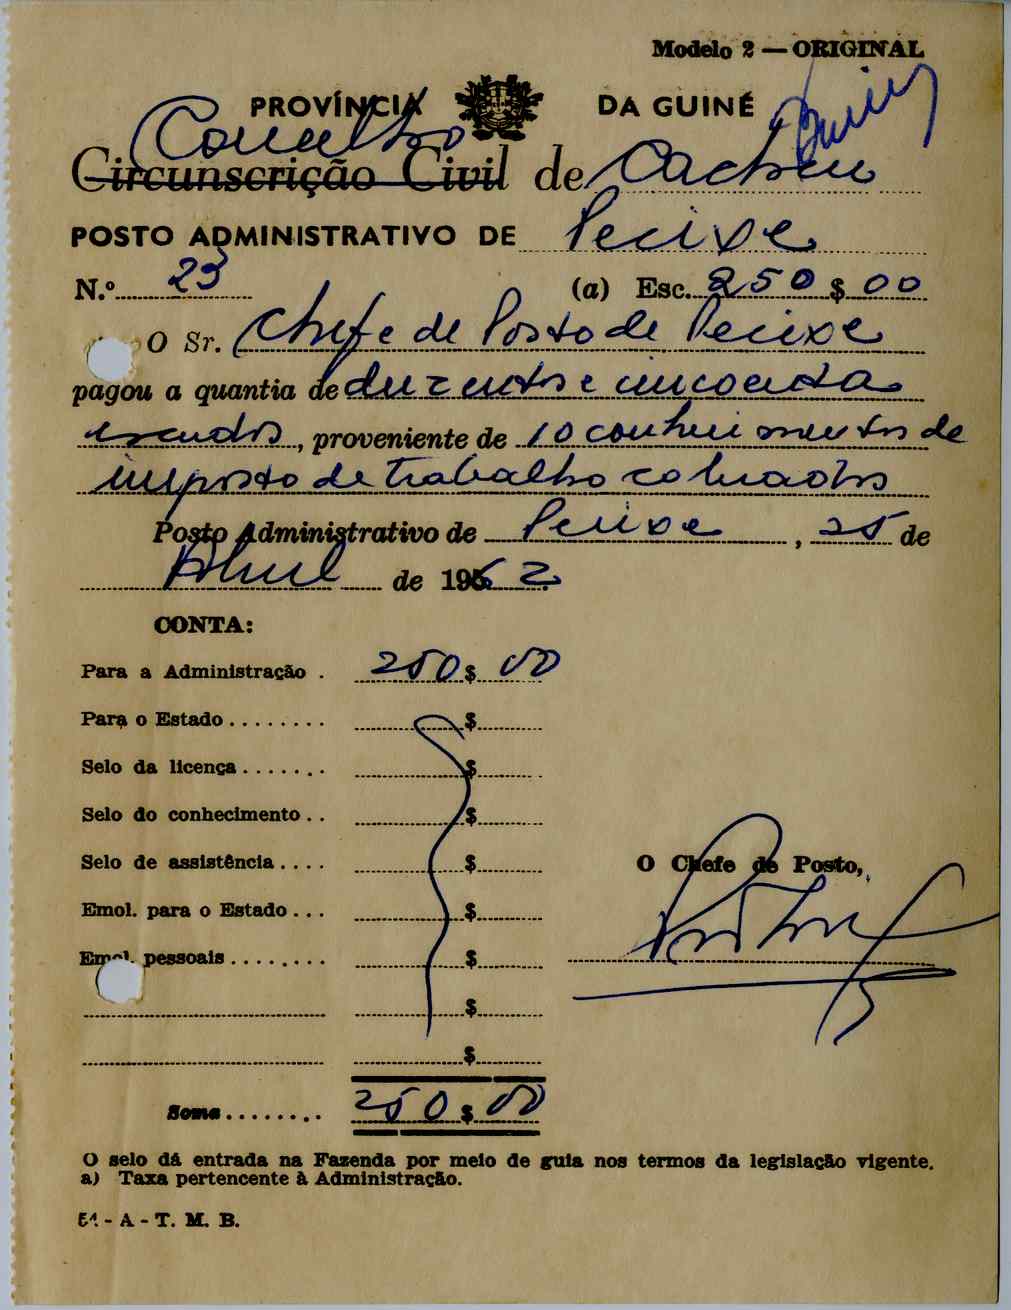 Modelo 2 — ORIGINAL
PROVÍNCIA DA GUINÉ
Concelho
Circunscrição Civil de Cacheu
POSTO ADMINISTRATIVO DE Pecixe
N.º 23 (a) Esc. 250 $ 00
O Sr. Chefe de Posto de Pecixe
pagou a quantia de duzentos e cincoenta
escudos, proveniente de 10 conhecimentos de
imposto de trabalho cobrados
Posto Administrativo de Pecixe, 25 de
Abril de 1962
CONTA:
Para a Administração . 250 $ 00
Para o Estado ........ $
Selo da licença ....... $
Selo do conhecimento .. $
Selo de assistência .... $
O Chefe de Posto,
Emol. para o Estado ... $
Emol. pessoais ........ $
$
$
Soma ........ 250 $ 00
O selo dá entrada na Fazenda por meio de guia nos termos da legislação vigente.
a) Taxa pertencente à Administração.
51 - A - T. M. B.